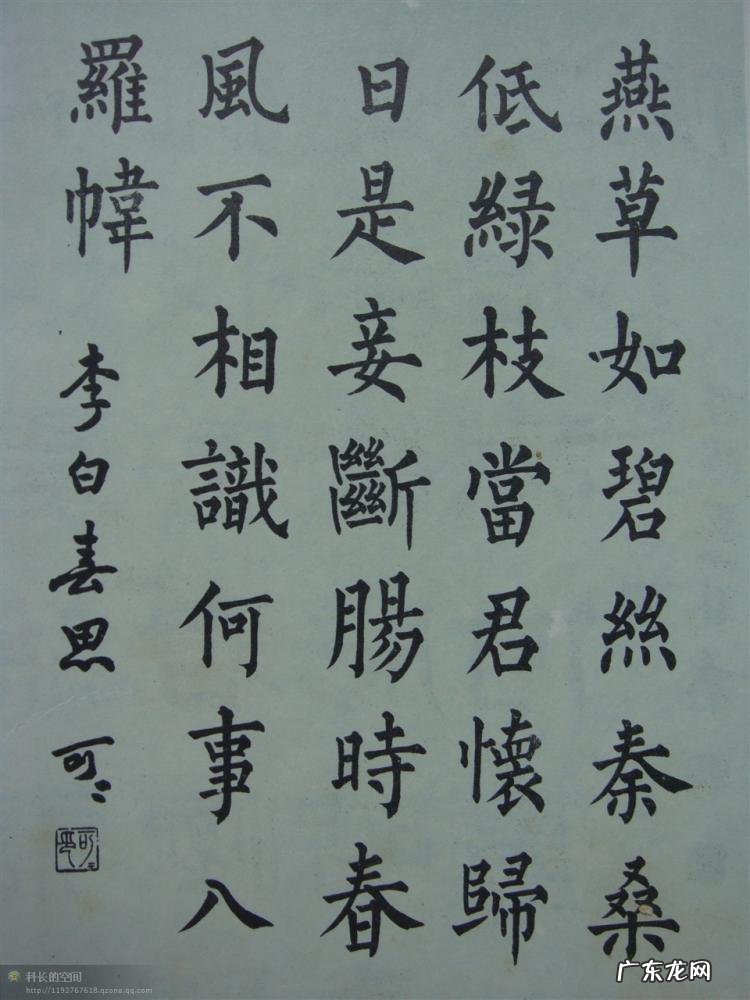 燕草如碧絲秦桑
低緑枝當君懷歸
日是妾斷腸時春
風不相識何事八
羅幃
李白春思 可〻
科长的空间
http://1193767618.qzone.qq.com
广东龙网